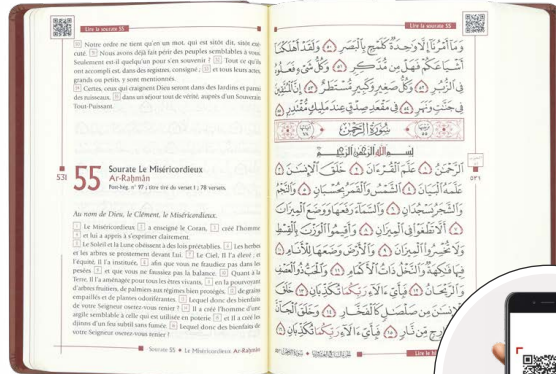 Lire la sourate 55
Notre ordre ne tient qu'en un mot, qui est sitôt dit, sitôt exé-
cuté. Nous avons déjà fait périr des peuples semblables à vous.
Seulement est-il quelqu'un pour s'en souvenir ? Tout ce qu'ils
ont accompli est, dans des registres, consigné ; et tous leurs actes,
grands ou petits, y sont mentionnés.
Certes, ceux qui craignent Dieu seront dans des Jardins et parmi
des ruisseaux, dans un séjour tout de vérité, auprès d'un Souverain
Tout-Puissant.
531
55
Sourate Le Miséricordieux
Ar-Raḥmân
Post-hég. n° 97 ; titre tiré du verset 1 ; 78 versets.
Au nom de Dieu, le Clément, le Miséricordieux.
1 Le Miséricordieux 2 a enseigné le Coran, 3 créé l'homme
4 et lui a appris à s'exprimer clairement.
5 Le Soleil et la Lune obéissent à des lois préétablies. 6 Les herbes
et les arbres se prosternent devant Lui. 7 Le Ciel, Il l'a élevé ; et
l'équité, Il l'a instituée, 8 afin que vous ne fraudiez pas dans les
pesées 9 et que vous ne faussiez pas la balance. 10 Quant à la
Terre, Il l'a aménagée pour tous les êtres vivants, 11 en la pourvoyant
d'arbres fruitiers, de palmiers aux régimes bien protégés, 12 de grains
empaillés et de plantes odoriférantes. 13 Lequel donc des bienfaits
de votre Seigneur oserez-vous renier ? 14 Il a créé l'homme d'une
argile semblable à celle qui est utilisée en poterie 15 et Il a créé les
djinns d'un feu subtil sans fumée. 16 Lequel donc des bienfaits de
votre Seigneur oserez-vous renier ?
Sourate 55 • Le Miséricordieux Ar-Raḥmân
Lire la sourate 55
وَمَآ أَمْرُنَآ إِلَّا وَٰحِدَةٌ كَلَمْحٍۭ بِٱلْبَصَرِ ٥٠ وَلَقَدْ أَهْلَكْنَآ
أَشْيَاعَكُمْ فَهَلْ مِن مُّدَّكِرٍ ٥١ وَكُلُّ شَىْءٍ فَعَلُوهُ
فِى ٱلزُّبُرِ ٥٢ وَكُلُّ صَغِيرٍ وَكَبِيرٍ مُّسْتَطَرٌ ٥٣ إِنَّ ٱلْمُتَّقِينَ
فِى جَنَّٰتٍ وَنَهَرٍ ٥٤ فِى مَقْعَدِ صِدْقٍ عِندَ مَلِيكٍ مُّقْتَدِرٍۭ ٥٥
سُورَةُ الرَّحْمٰن
بِسْمِ ٱللَّهِ ٱلرَّحْمَٰنِ ٱلرَّحِيمِ
ٱلرَّحْمَٰنُ ١ عَلَّمَ ٱلْقُرْءَانَ ٢ خَلَقَ ٱلْإِنسَٰنَ ٣
عَلَّمَهُ ٱلْبَيَانَ ٤ ٱلشَّمْسُ وَٱلْقَمَرُ بِحُسْبَانٍ ٥ وَٱلنَّجْمُ
وَٱلشَّجَرُ يَسْجُدَانِ ٦ وَٱلسَّمَآءَ رَفَعَهَا وَوَضَعَ ٱلْمِيزَانَ
٧ أَلَّا تَطْغَوْا۟ فِى ٱلْمِيزَانِ ٨ وَأَقِيمُوا۟ ٱلْوَزْنَ بِٱلْقِسْطِ
وَلَا تُخْسِرُوا۟ ٱلْمِيزَانَ ٩ وَٱلْأَرْضَ وَضَعَهَا لِلْأَنَامِ ١٠
فِيهَا فَٰكِهَةٌ وَٱلنَّخْلُ ذَاتُ ٱلْأَكْمَامِ ١١ وَٱلْحَبُّ ذُو ٱلْعَصْفِ
وَٱلرَّيْحَانُ ١٢ فَبِأَىِّ ءَالَآءِ رَبِّكُمَا تُكَذِّبَانِ ١٣ خَلَقَ
ٱلْإِنسَٰنَ مِن صَلْصَٰلٍ كَٱلْفَخَّارِ ١٤ وَخَلَقَ ٱلْجَآنَّ
مِن مَّارِجٍ مِّن نَّارٍ ١٥ فَبِأَىِّ ءَالَآءِ رَبِّكُمَا تُكَذِّبَانِ ١٦
٥٣١